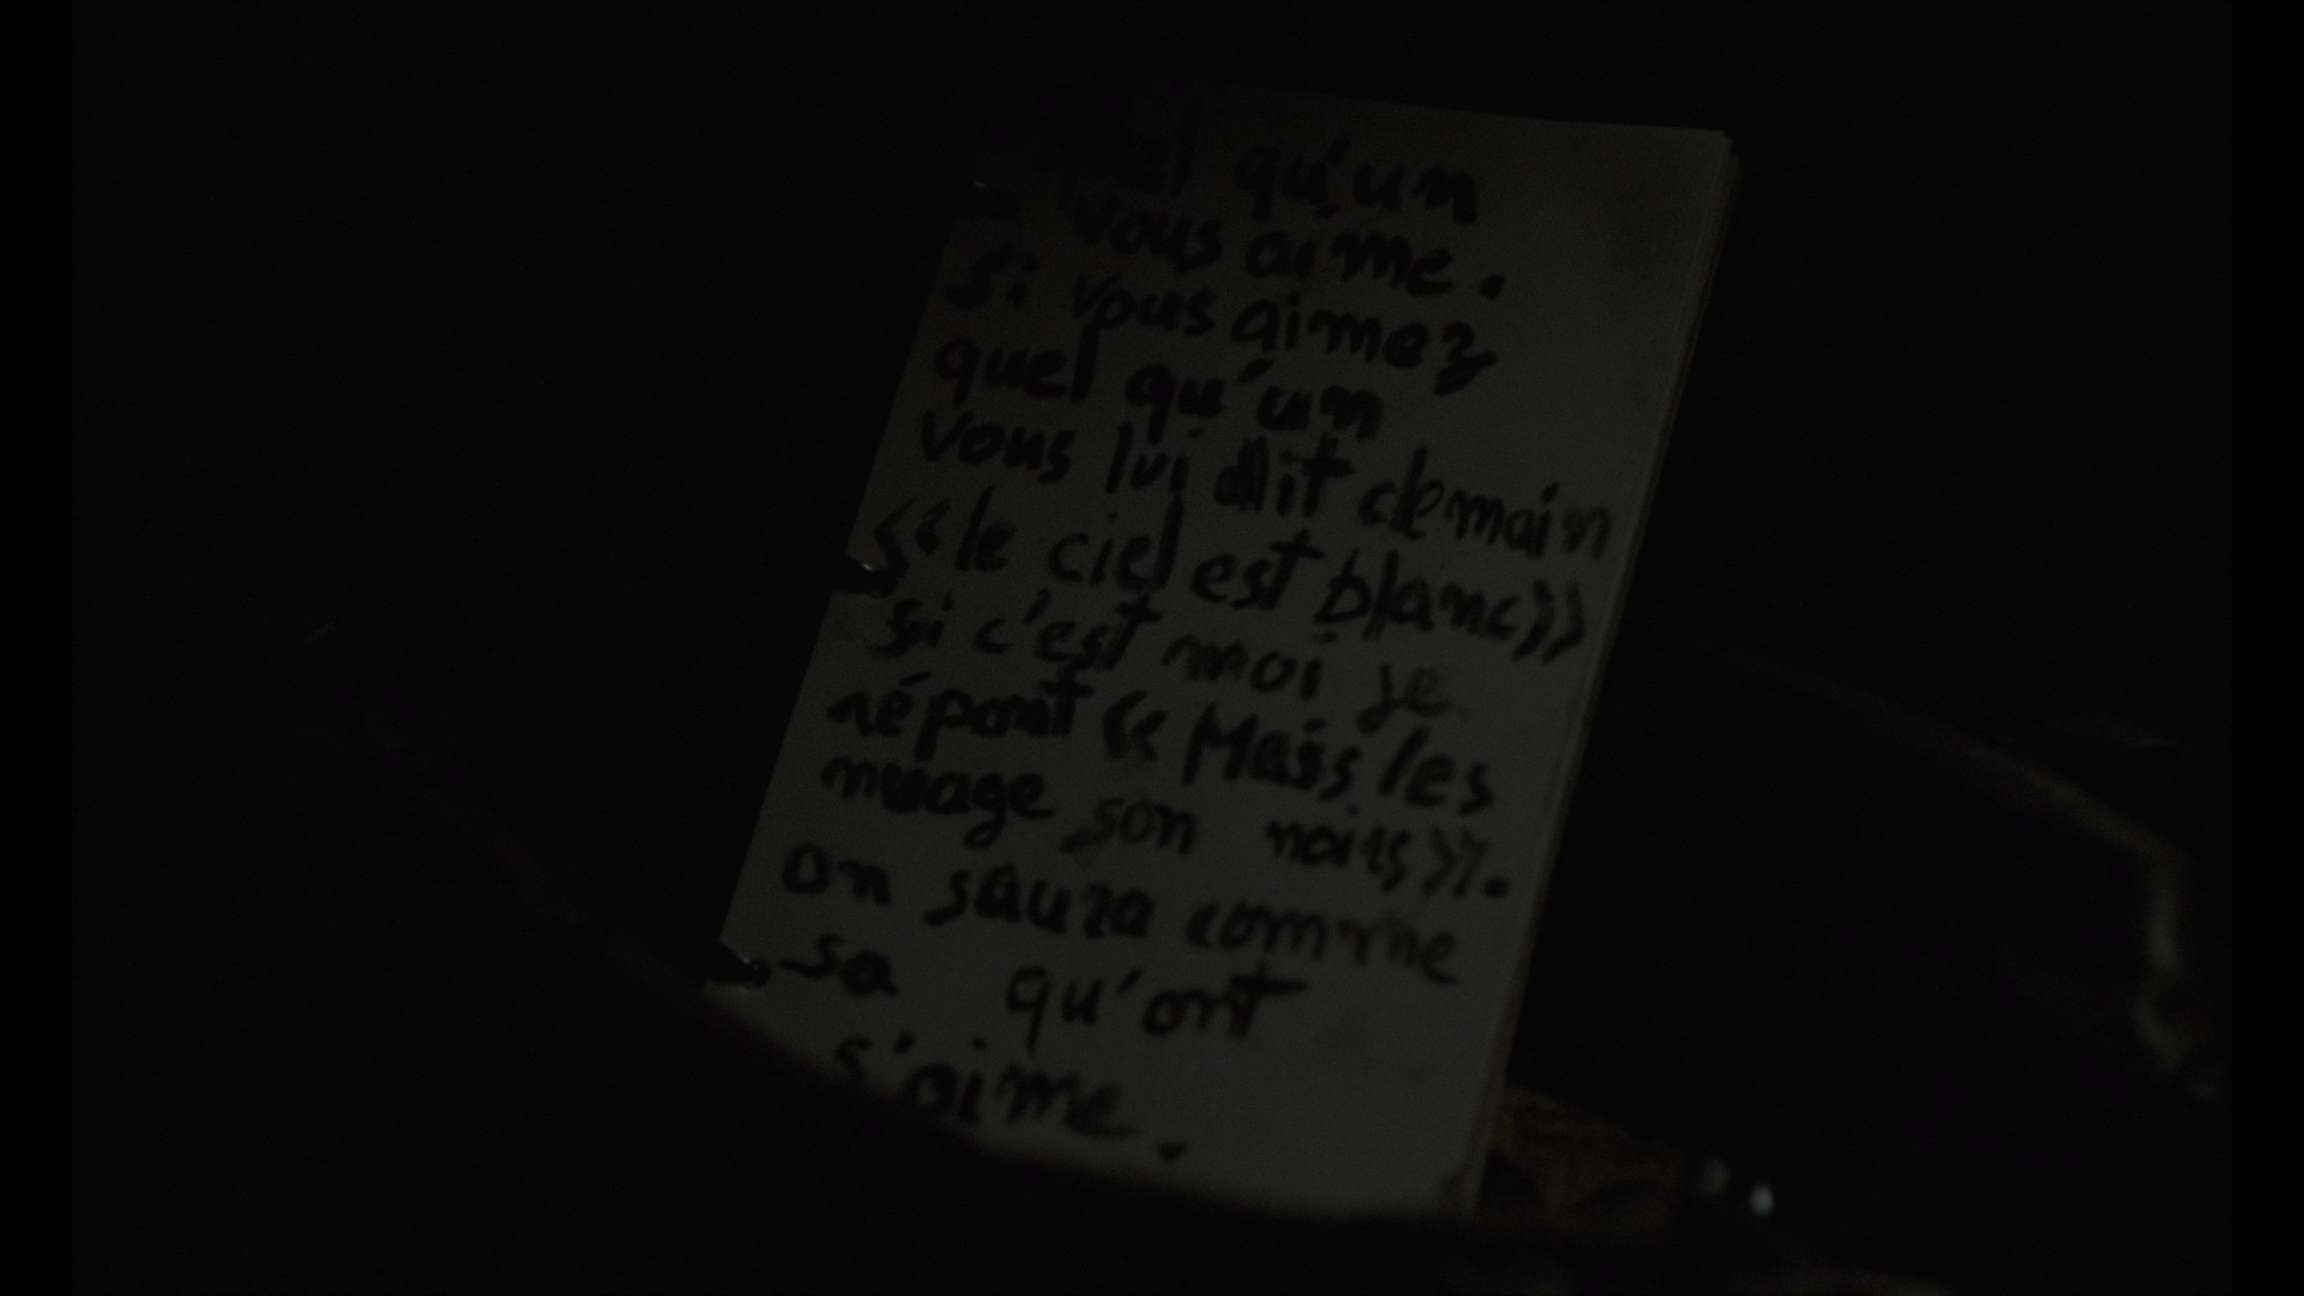 qu'un
vous aime.
Si vous aimez
quel qu'un
vous lui dit demain
<<le ciel est blanc>>
si c'est moi je
répont << Mais les
nuage son noirs>>.
on saura comme
sa qu'ont
s'aime.